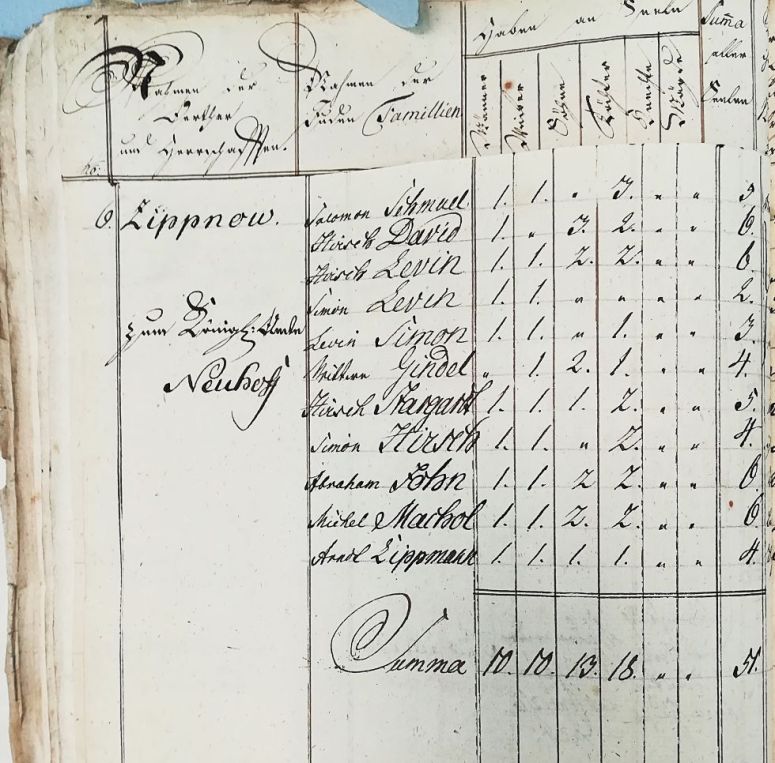 Haben an Seelen
Nahmen der
Oerther
und Herrschafften.
Nahmen der
Juden Famillien
Männer
Weiber
Söhne
Töchter
Knechte
Mägde
Suma
aller
Seelen
No:
6. Lippnow. Salomon Schmuel 1. 1. „ 3. „ „ 5
Hirsch David 1. „ 3. 2. „ „ 6.
Hirsch Levin 1. 1. 2. 2. „ „ 6.
Simon Levin 1. 1. „ „ „ „ 2.
zum Königl: Amte Levin Simon 1. 1. „ 1. „ „ 3.
Neuhoff Wittwe Gindel „ 1. 2. 1. „ „ 4.
Hirsch 1. 1. 1. 2. „ „ 5.
Simon Hirsch 1. 1. „ 2. „ „ 4.
Abraham John 1. 1. 2 2. „ „ 6
Michel Machol 1. 1. 2. 2. „ „ 6
Lippmann 1. 1. 1. 1. „ „ 4.
Summa 10. 10. 13. 18. „ „ 51.